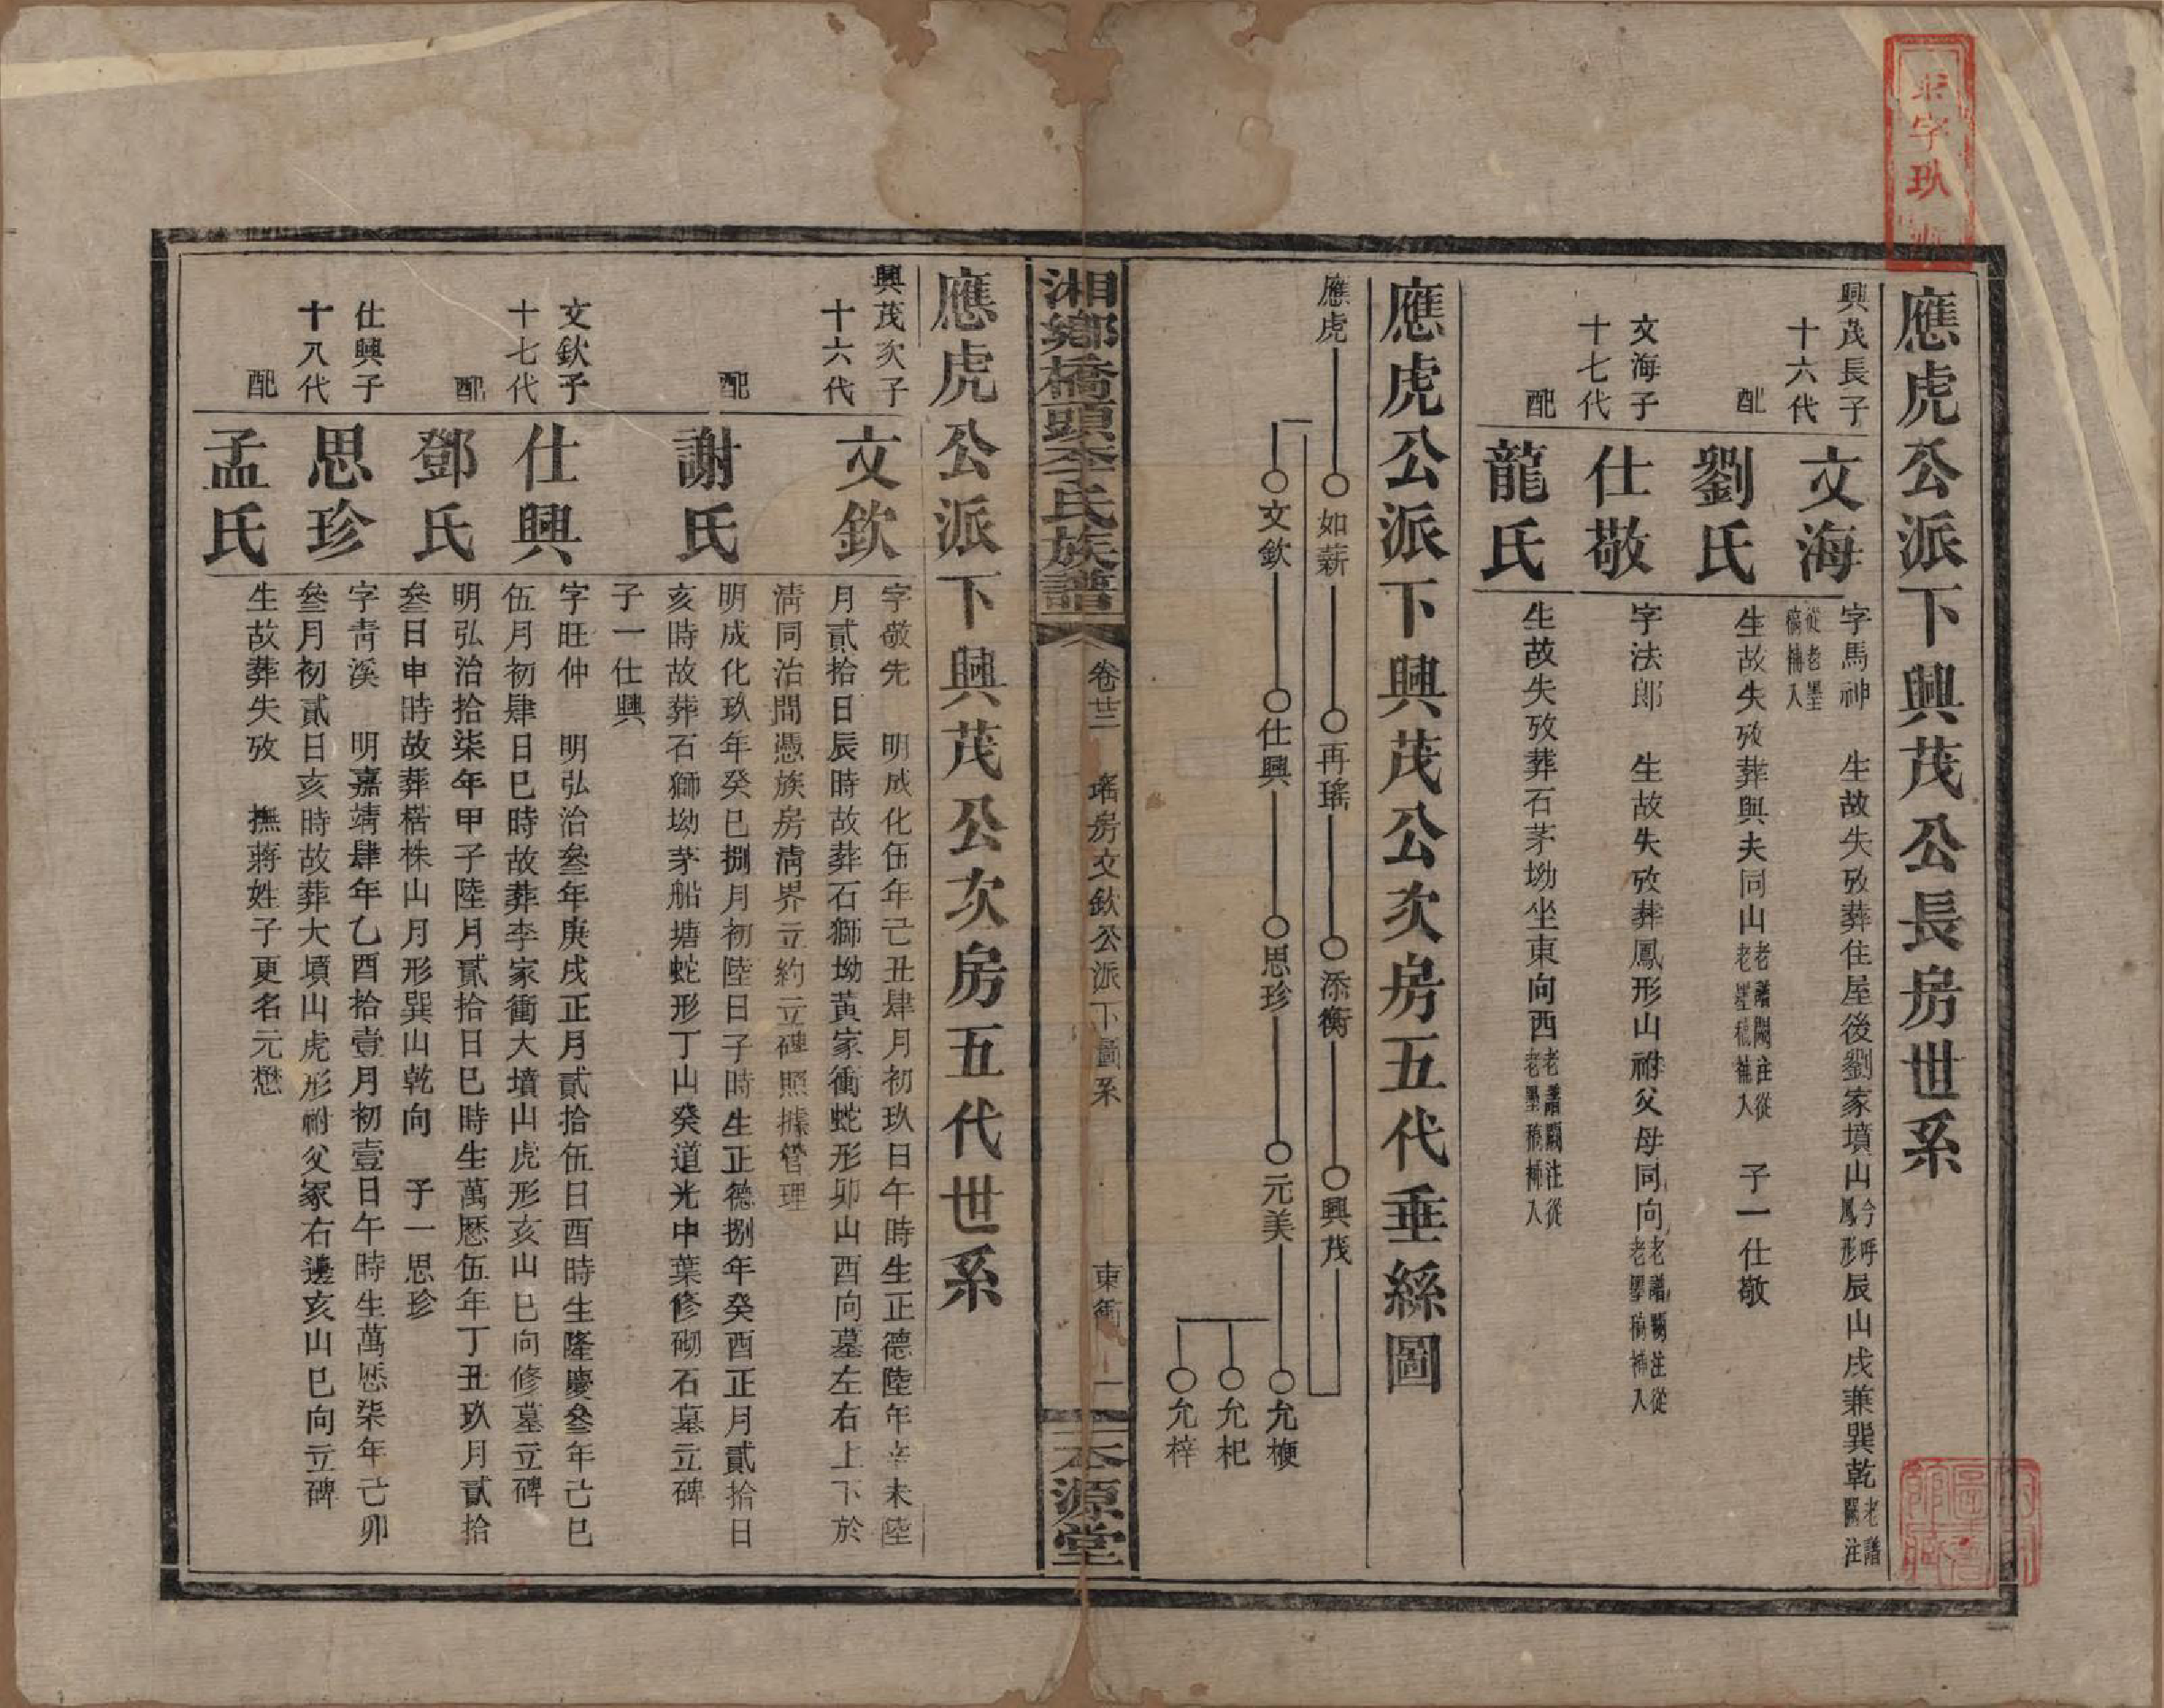 應虎公派下興茂公長房世系
興茂長子
十六代
文海
字馬神　生故失攷葬住屋後劉家墳山今呼鳳形辰山戌兼巽乾老譜闕注
從老墨稿補入
配
劉氏
生故失攷葬與夫同山老譜闕注從老墨稿補入　子一仕敬
文海子
十七代
仕敬
字法郎　生故失攷葬鳳形山祔父母同向老譜闕注從老墨稿補入
配
龍氏
生故失攷葬石茅坳坐東向西老譜闕注從老墨稿補入
應虎公派下興茂公次房五代垂絲圖
應虎
如薪
再瑤
添衡
興茂
文欽
仕興
思珍
元美
允梗
允杞
允梓
湘鄉橋頭李氏族譜
卷廿二
瑤房文欽公派下圖系
東衝
一
本源堂
應虎公派下興茂公次房五代世系
興茂次子
十六代
文欽
字敬先　明成化伍年己丑肆月初玖日午時生正德陸年辛未陸
月貳拾日辰時故葬石獅坳黃家衝蛇形卯山酉向墓左右上下於
清同治間憑族房清界立約立碑照據管理
配
謝氏
明成化玖年癸巳捌月初陸日子時生正德捌年癸酉正月貳拾日
亥時故葬石獅坳茅船塘蛇形丁山癸道光中葉修砌石墓立碑
子一仕興
文欽子
十七代
仕興
字旺仲　明弘治叄年庚戌正月貳拾伍日酉時生隆慶叄年己巳
伍月初肆日巳時故葬李家衝大墳山虎形亥山巳向修墓立碑
配
鄧氏
明弘治拾柒年甲子陸月貳拾日巳時生萬厯伍年丁丑玖月貳拾
叄日申時故葬楛株山月形巽山乾向　子一思珍
仕興子
十八代
思珍
字青溪　明嘉靖肆年乙酉拾壹月初壹日午時生萬厯柒年己卯
叄月初貳日亥時故葬大墳山虎形祔父冢右邊亥山巳向立碑
配
孟氏
生故葬失攷　撫蔣姓子更名元懋